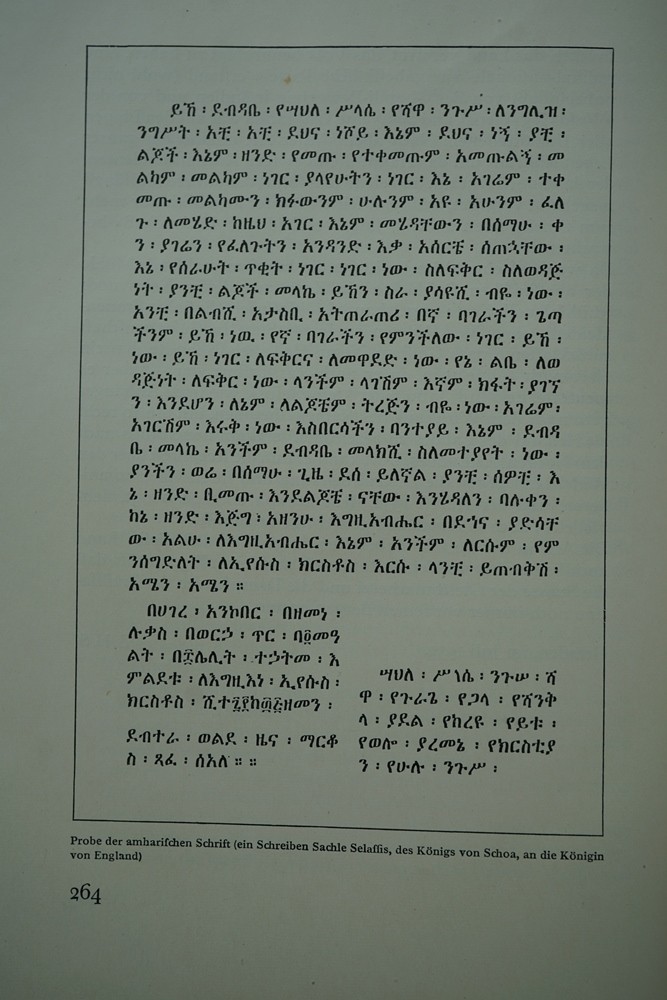 ይኸ ፡ ደብዳቤ ፡ የሣህለ ፡ ሥላሴ ፡ የሻዋ ፡ ንጉሥ ፡ ለንግሊዝ ፡
ንግሥት ፡ አቺ ፡ አቺ ፡ ደህና ፡ ነሾይ ፡ እኔም ፡ ደህና ፡ ነኝ ፡ ያቺ ፡
ልጆች ፡ እኔም ፡ ዘንድ ፡ የመጡ ፡ የተቀመጡም ፡ አመጡልኝ ፡ መ
ልካም ፡ መልካም ፡ ነገር ፡ ያላየሁትን ፡ ነገር ፡ እኔ ፡ አገሬም ፡ ተቀ
መጡ ፡ መልካሙን ፡ ክፋውንም ፡ ሁሉንም ፡ አዩ ፡ አሁንም ፡ ፈለ
ጉ ፡ ለመሄድ ፡ ከዚህ ፡ አገር ፡ እኔም ፡ መሄዳቸውን ፡ በሰማሁ ፡ ቀ
ን ፡ ያገሬን ፡ የፈለጉትን ፡ አንዳንድ ፡ እቃ ፡ አሰርቼ ፡ ሰጠኋቸው ፡
እኔ ፡ የሰራሁት ፡ ጥቂት ፡ ነገር ፡ ነገር ፡ ነው ፡ ስለፍቅር ፡ ስለወዳጅ
ነት ፡ ያንቺ ፡ ልጆች ፡ መላኬ ፡ ይኸን ፡ ስራ ፡ ያሳዩሺ ፡ ብዬ ፡ ነው ፡
አንቺ ፡ በልብሺ ፡ አታስቢ ፡ አትጠራጠሪ ፡ በኛ ፡ ባገራችን ፡ ጌጣ
ችንም ፡ ይኸ ፡ ነዉ ፡ የኛ ፡ ባገራችን ፡ የምንችለው ፡ ነገር ፡ ይኸ ፡
ነው ፡ ይኸ ፡ ነገር ፡ ለፍቅርና ፡ ለመዋደድ ፡ ነው ፡ የኔ ፡ ልቤ ፡ ለወ
ዳጅነት ፡ ለፍቅር ፡ ነው ፡ ላንችም ፡ ላገሽም ፡ እኛም ፡ ክፋት ፡ ያገኘ
ን ፡ እንደሆን ፡ ለኔም ፡ ለልጆቼም ፡ ትረጅን ፡ ብዬ ፡ ነው ፡ አገሬም ፡
አገርሽም ፡ እሩቅ ፡ ነው ፡ እስበርሳችን ፡ ባንተያይ ፡ እኔም ፡ ደብዳ
ቤ ፡ መላኬ ፡ አንችም ፡ ደብዳቤ ፡ መላክሺ ፡ ስለመተያየት ፡ ነው ፡
ያንችን ፡ ወሬ ፡ በሰማሁ ፡ ጊዜ ፡ ደስ ፡ ይለኛል ፡ ያንቺ ፡ ሰዎቺ ፡ እ
ኔ ፡ ዘንድ ፡ ቢመጡ ፡ እንደልጆቼ ፡ ናቸው ፡ እንሄዳለን ፡ ባሉቀን ፡
ከኔ ፡ ዘንድ ፡ እጅግ ፡ አዘንሁ ፡ እግዚአብሔር ፡ በደኅና ፡ ያድሳቸ
ው ፡ አልሁ ፡ ለእግዚአብሔር ፡ እኔም ፡ አንችም ፡ ለርሱም ፡ የም
ንሰግድለት ፡ ለኢየሱስ ፡ ክርስቶስ ፡ እርሱ ፡ ላንቺ ፡ ይጠብቅሽ ፡
አሜን ፡ አሜን ።
በሀገረ ፡ አንኮበር ፡ በዘመነ ፡
ሉቃስ ፡ በወርኃ ፡ ጥር ፡ በ፬መዓ
ልት ፡ በ፲ሌሊት ፡ ተኃትመ ፡ እ
ምልደቱ ፡ ለእግዚእነ ፡ ኢየሱስ ፡
ክርስቶስ ፡
ደብተራ ፡ ወልደ ፡ ዜና ፡ ማርቆ
ስ ፡ ጻፈ ፡ ሰአለ ። ።
ሣህለ ፡ ሥላሴ ፡ ንጉሠ ፡ ሻ
ዋ ፡ የጉራጌ ፡ የጋላ ፡ የሻንቅ
ላ ፡ ያደል ፡ የከረዩ ፡ የይቱ ፡
የወሎ ፡ ያረመኔ ፡ የክርስቲያ
ን ፡ የሁሉ ፡ ንጉሥ ፡
Probe der amhariſchen Schrift (ein Schreiben Sachle Selaſſis, des Königs von Schoa, an die Königin
von England)
264